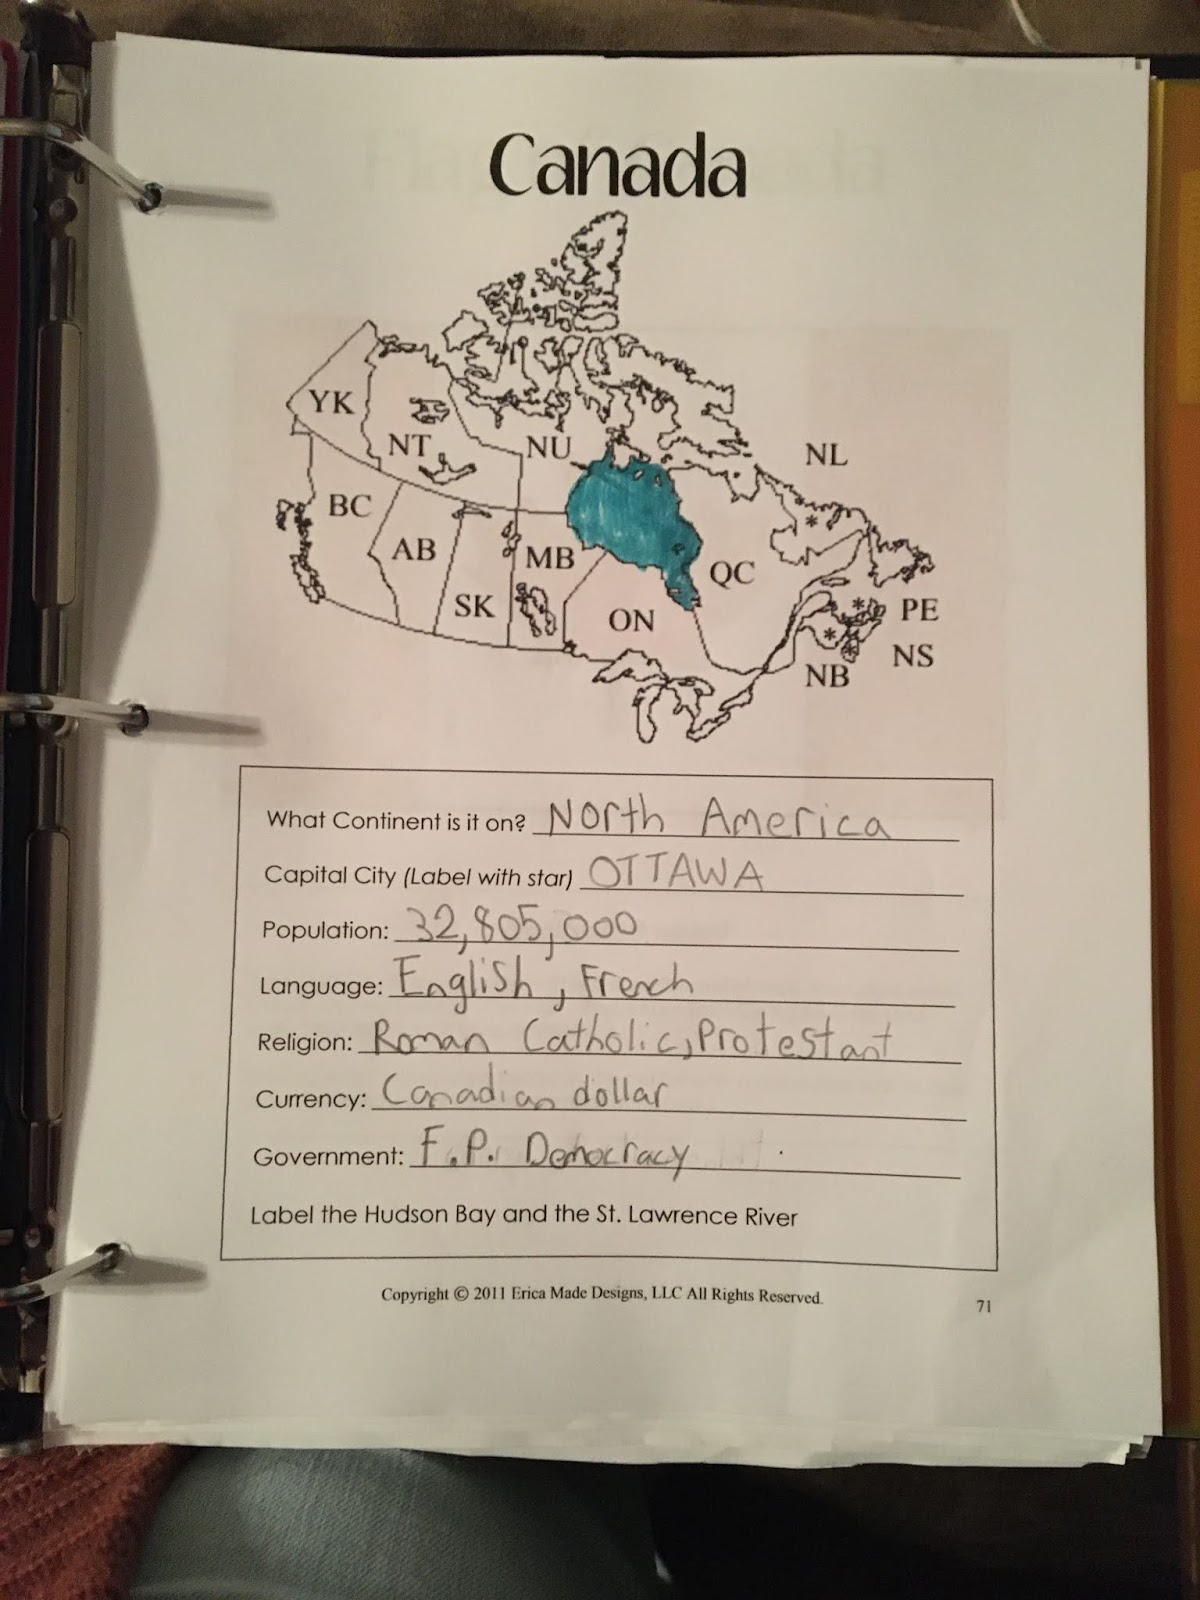 Canada
YK
NT
NU
NL
BC
AB
SK
MB
ON
QC
PE
NS
NB
What Continent is it on? North America
Capital City (Label with star) OTTAWA
Population: 32,805,000
Language: English, French
Religion: Roman Catholic, Protestant
Currency: Canadian dollar
Government: F.P. Democracy
Label the Hudson Bay and the St. Lawrence River
Copyright © 2011 Erica Made Designs, LLC All Rights Reserved.
71